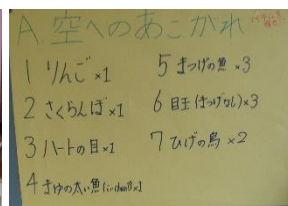 A.空へのあこがれ
1 りんご×1
2 さくらんぼ×1
3 ハートの目×1
4 まゆの太い魚
5 まつげの魚×3
6 目玉(まつげなし)×3
7 ひげの鳥×2